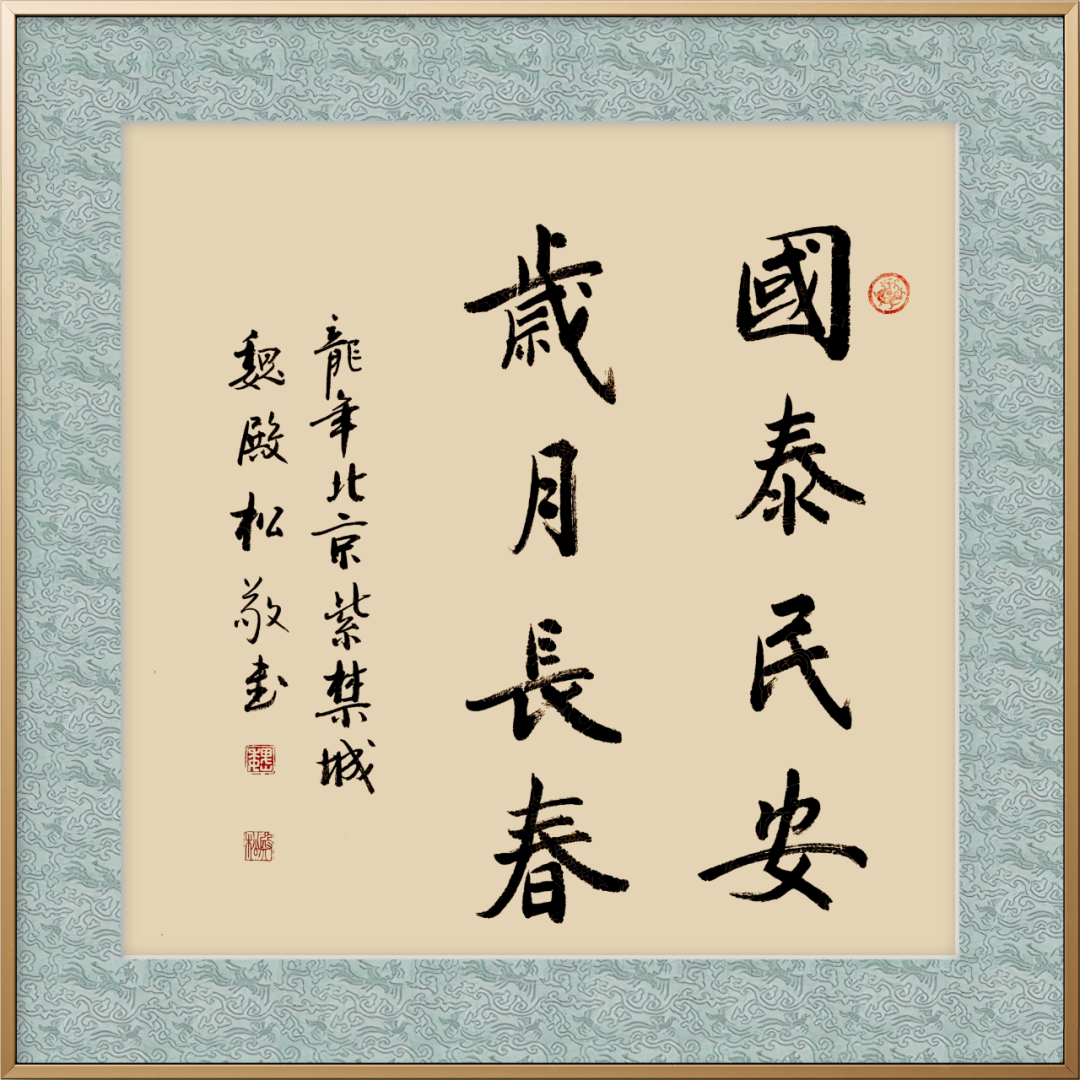 國泰民安
歲月長春
龍年北京紫禁城
魏殿松敬書